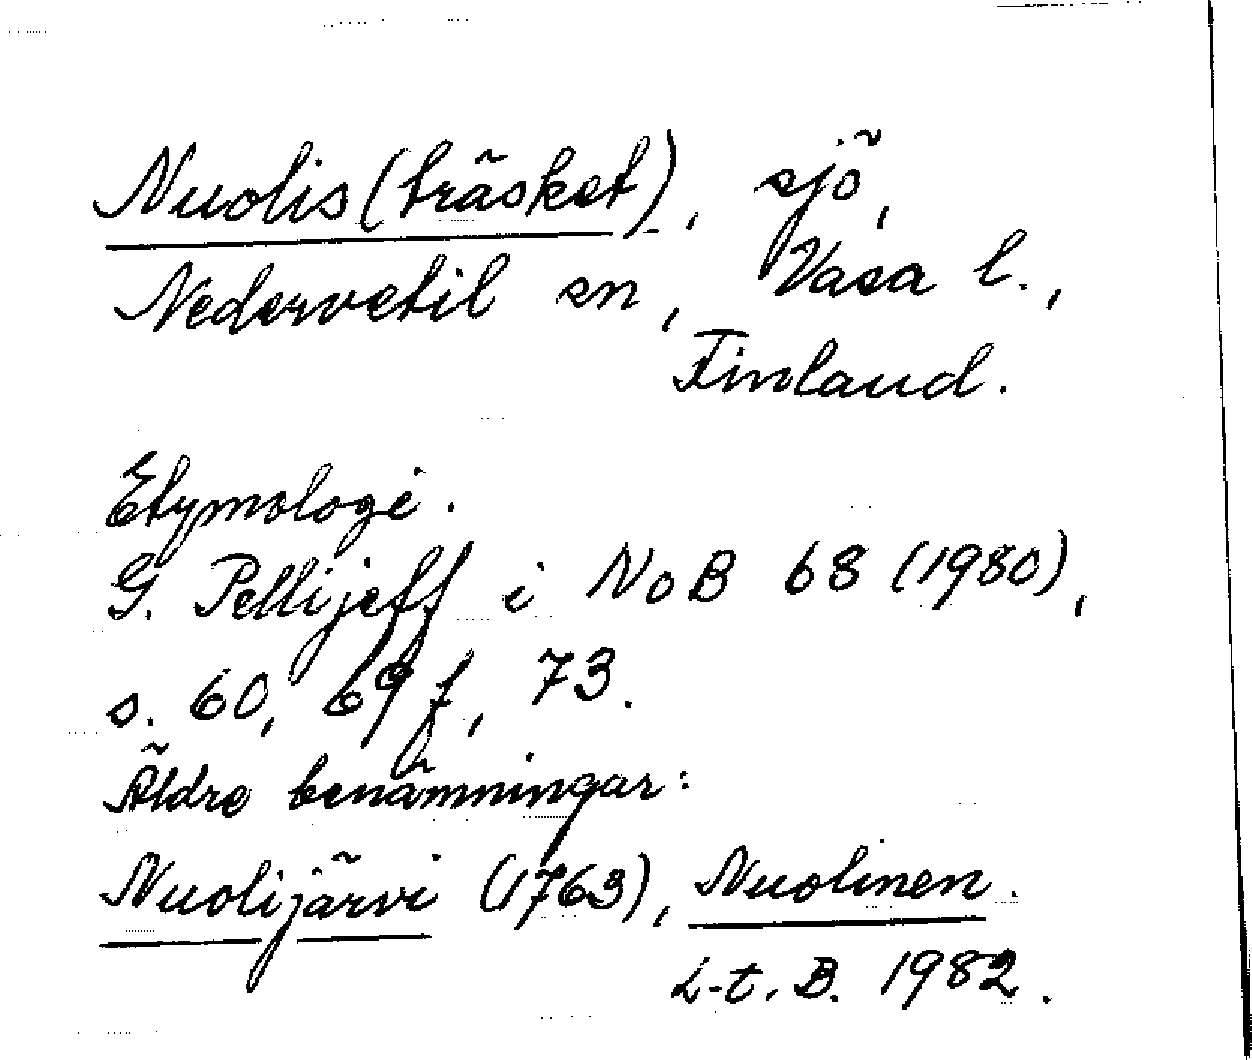 Nuolis(träsket), sjö,
Nedervetil sn, Vasa l.,
Finland.
Etymologi.
G. Pellijeff i NoB 68 (1980),
s. 60, 69 f, 73.
Äldre benämningar:
Nuolijärvi (1763), Nuolinen.
L-t. B. 1982.